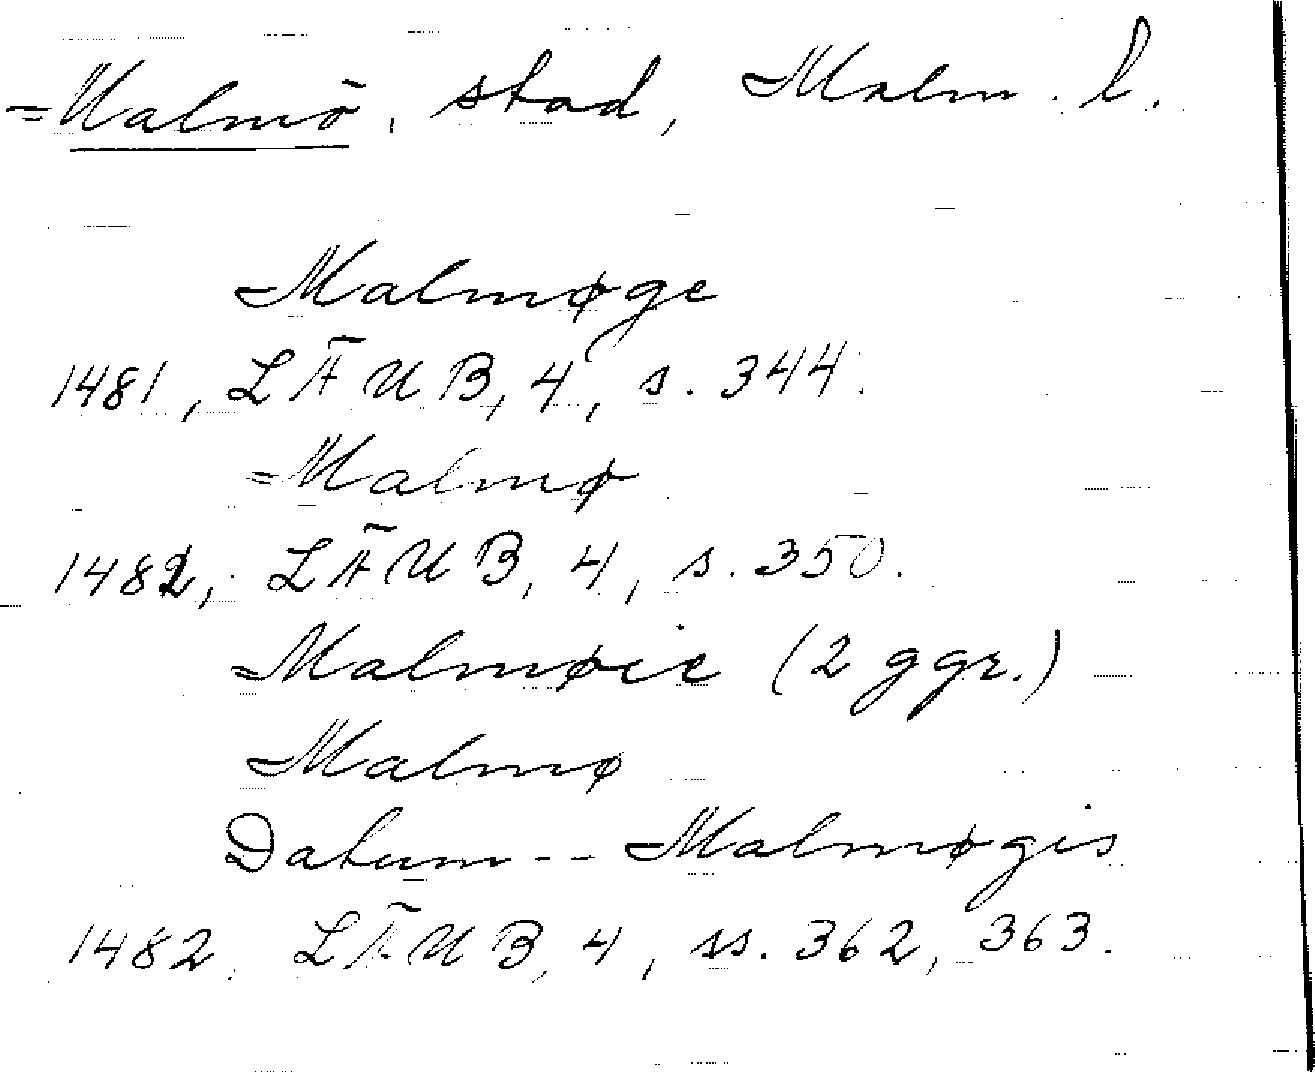 Malmö, stad, Malm. l.
Malmøge
1481, LÄUB, 4, s. 344.
Malmø
1482, LÄUB, 4, s. 350.
Malmøie (2 ggr.)
Malmø
Datum -- Malmøgis
1482, LÄUB, 4, ss. 362, 363.